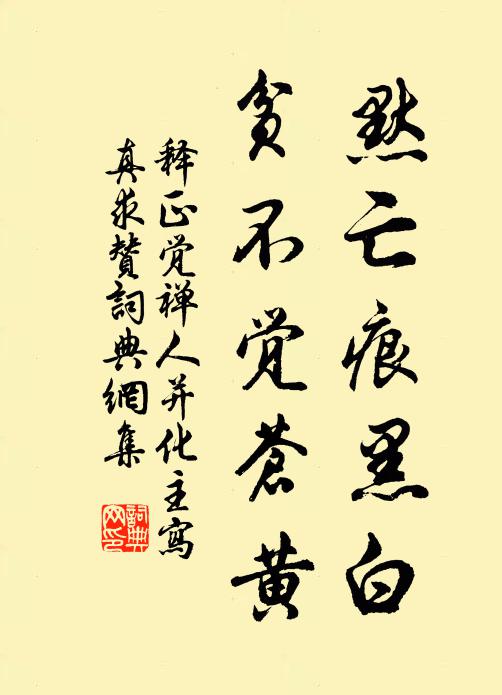 默亡痕黑白
贫不觉苍黄
释正觉禅人并化主写
真求赞词典网集
词典
网印